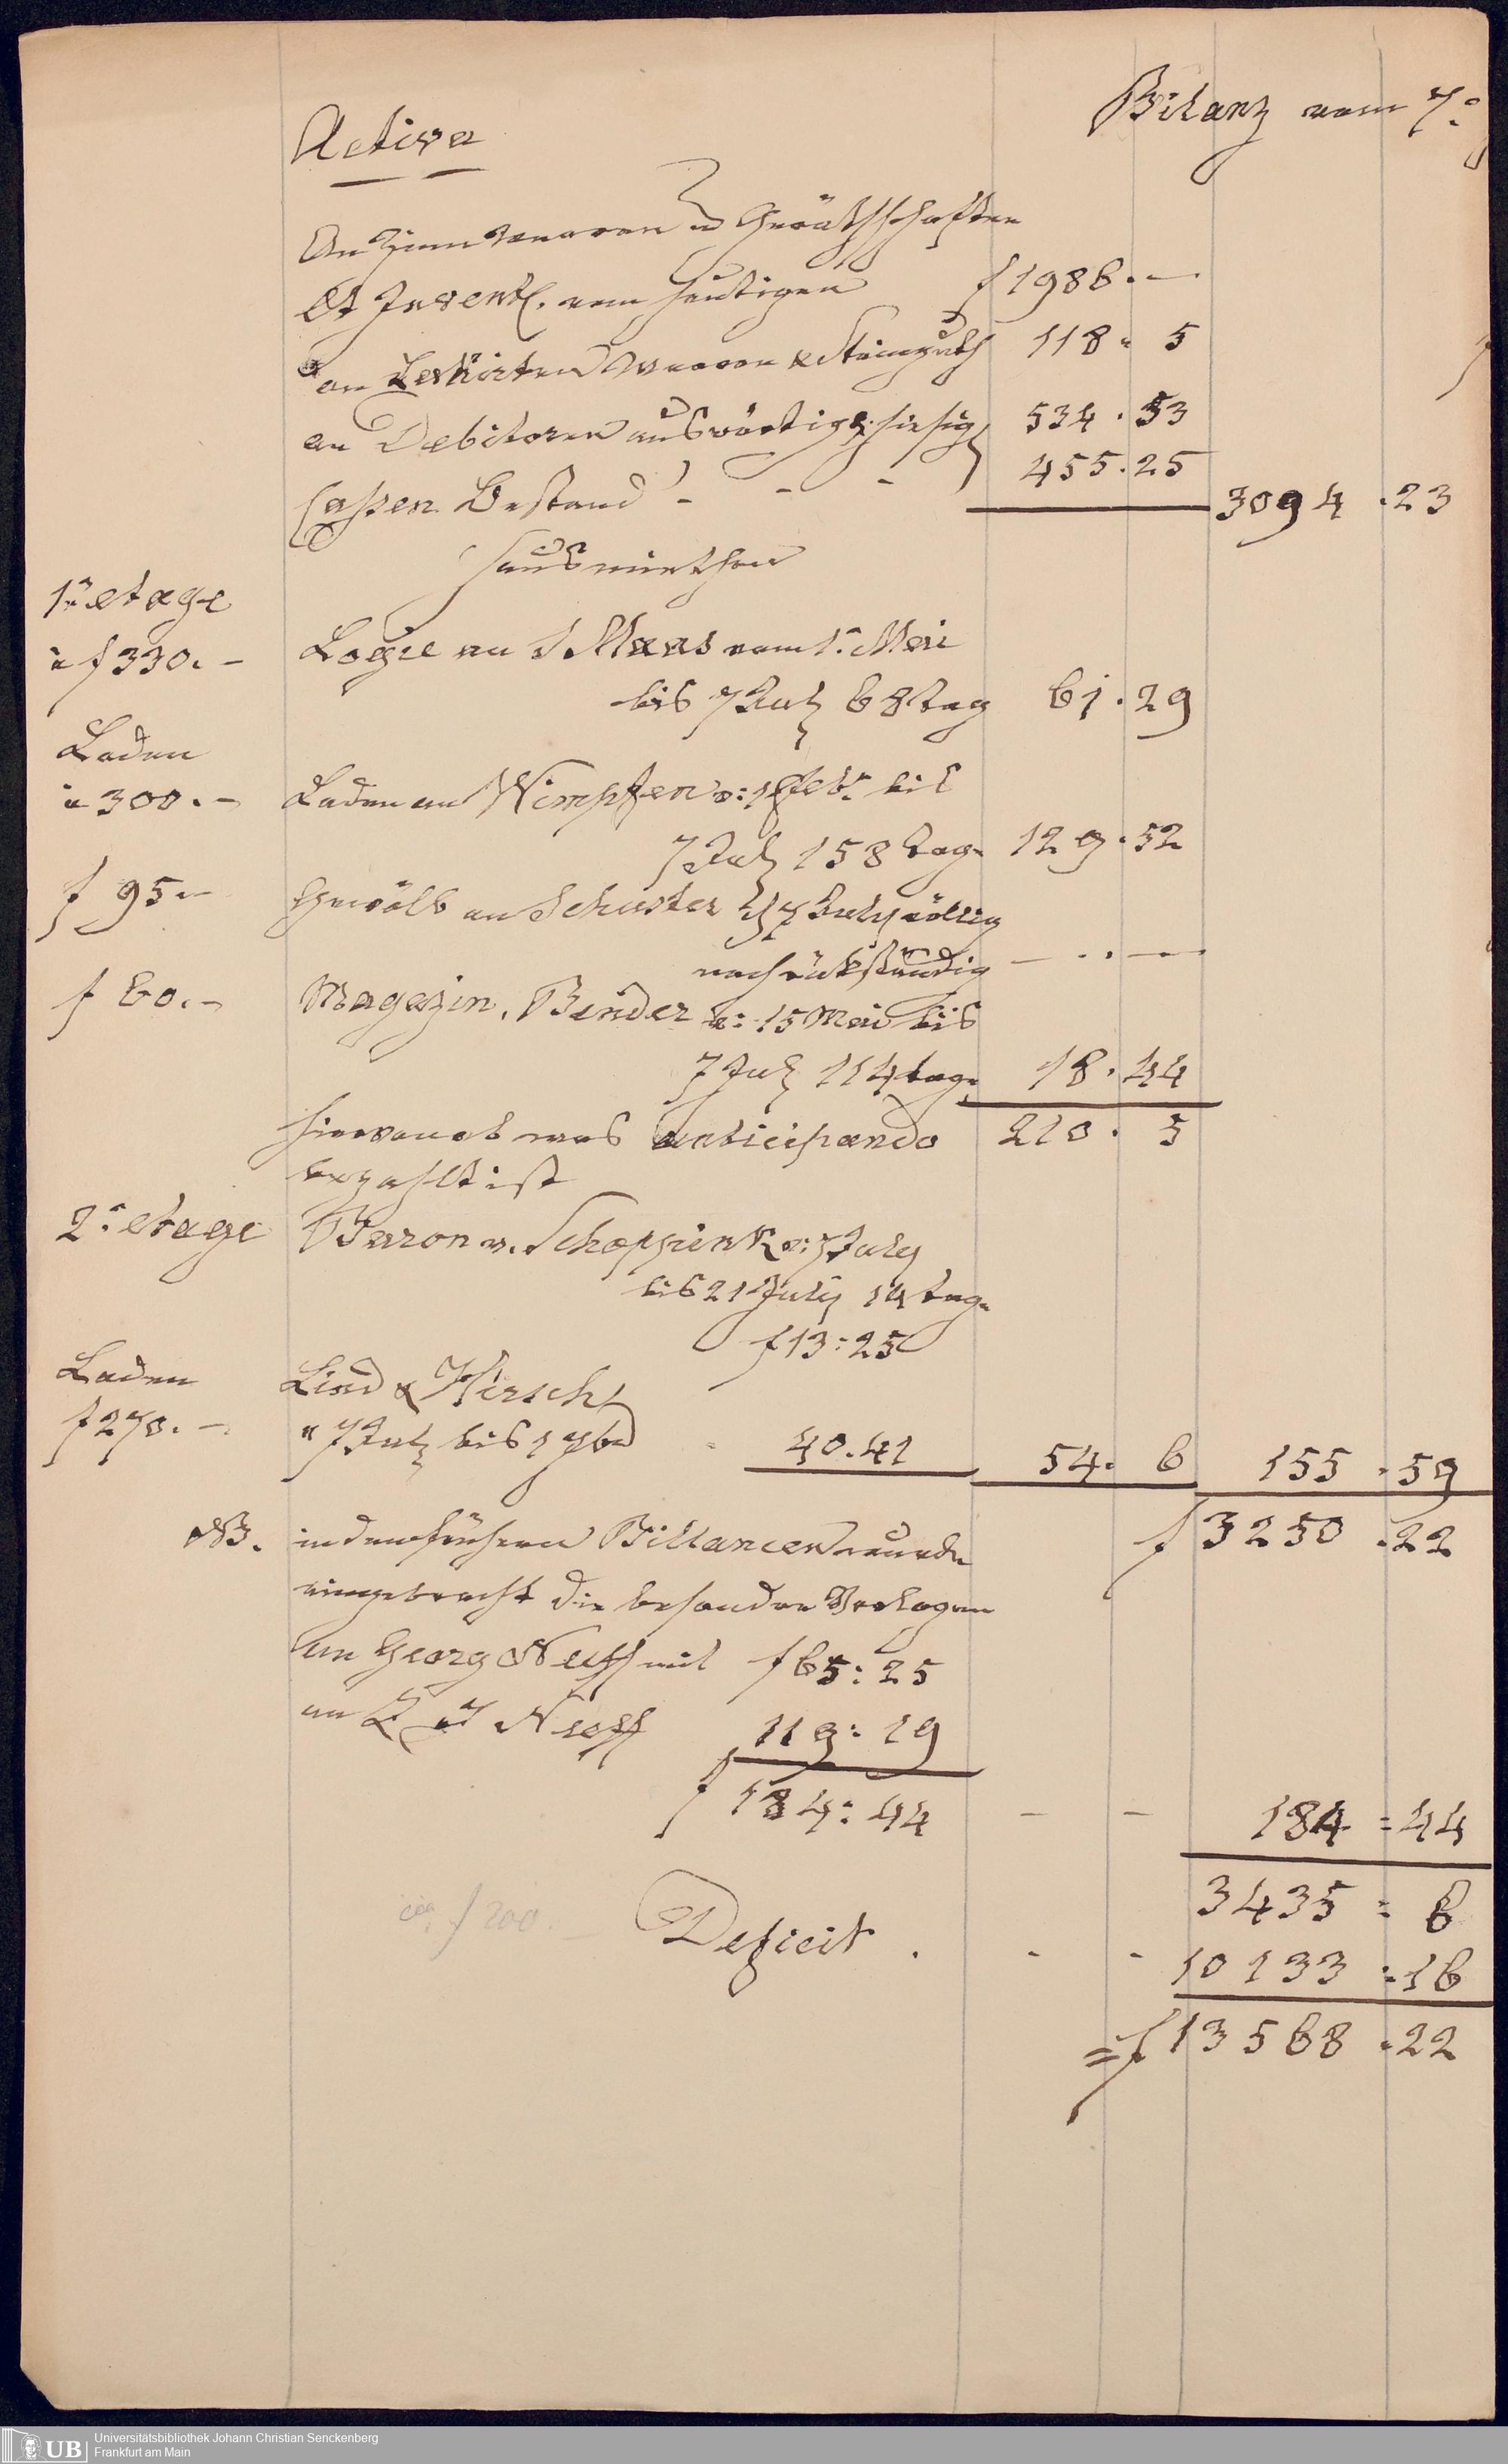 Bilanz vom 7:
Activa
An Zinnwaaren u Geräthschaften
lt Inventr. vom heutigen f 1986. —
an Lakirten Waaren & Steinguth 118 " 5
an Debitoren auswärtig & hiesig 534 . 53
Cassen Bestand - - - 455 . 25
3094 . 23
Hausmiethen
1r etage
à f 330. — Logie an Maas vom 1. Mai
bis 7 July 68 Tag 61 . 29
Laden
à 300. — Laden an Wimpfen v: 1 feb. bis
7 July 158 Tage 129 . 52
f 95 — Gewölb an Schuster 7 July völlig
noch rückständig — . . —
f 60. — Magazin, Bender v: 15 Mai bis
7 July 114 tage 18 . 44
hiervon ab was anticipando 210 . 5
bezahlt ist
2: etage Baron v. Schoppink v: 7 July
bis 21 July 14 tage
f 13 : 25
Laden Lind & Hirsch
f 270. — " 7 July bis 1 7br 40 . 41 54 . 6 155 . 59
f 3250 . 22
NB. in den frühern Billancen wurde
eingebracht die besondere Vorlagen
an Georg Neeff mit f 65 : 25
an Neeff 119 : 19
f 184 : 44 — — 184 = 44
3435 = 6
f 200. — Deficit . - - 10133 = 16
= f 13568 . 22
UB
Universitätsbibliothek Johann Christian Senckenberg
Frankfurt am Main